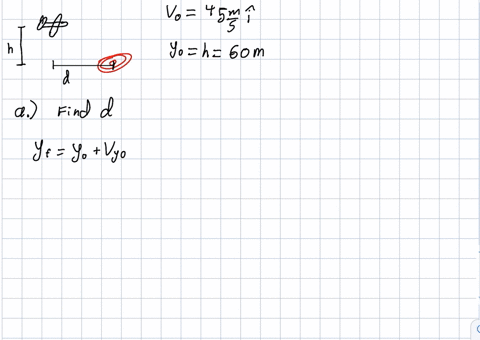 V₀ = 45 m/s î
y₀ = h = 60 m
h
d
a.) Find d
y_f = y₀ + V_y0